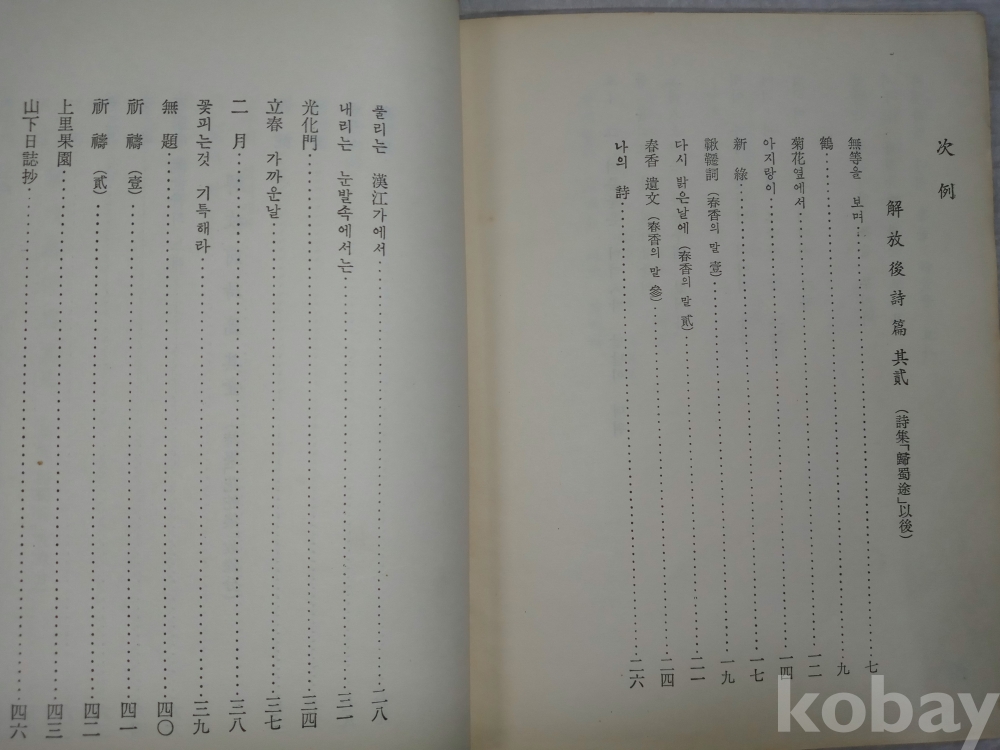 次例
解放後詩篇 其貳 (詩集「歸蜀途」以後)
無等을 보며 七
鶴 九
菊花옆에서 一二
아지랑이 一四
新綠 一七
鞦韆詞 (春香의 말 壹) 一九
다시 밝은날에 (春香의 말 貳) 二一
春香 遺文 (春香의 말 參) 二四
나의 詩 二六
풀리는 漢江가에서 二八
내리는 눈발속에서는 三一
光化門 三四
立春 가까운날 三七
二月 三八
꽃피는것 기특해라 三九
無題 四〇
祈禱 (壹) 四一
祈禱 (貳) 四二
上里果園 四三
山下日誌抄 四六
kobay